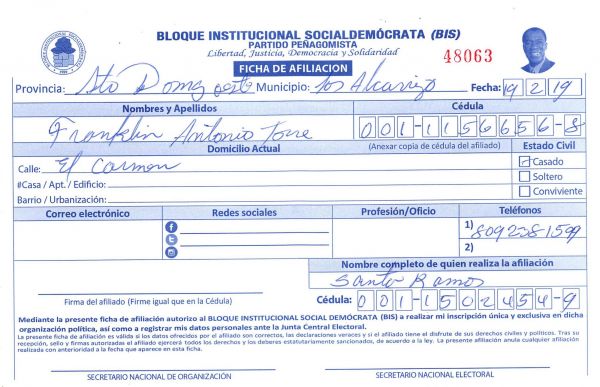 BLOQUE INSTITUCIONAL SOCIALDEMÓCRATA (BIS)
PARTIDO PEÑAGOMISTA
Libertad, Justicia, Democracia y Solidaridad
48063
FICHA DE AFILIACION
Provincia: Sto Domgo oeste Municipio: los Alcarrizo Fecha: 19 2 19
Nombres y Apellidos Cédula
Franklin Antonio Torre 001-1156656-8
Domicilio Actual (Anexar copia de cédula del afiliado) Estado Civil
Calle: El Carmen Casado
#Casa / Apt. / Edificio: Soltero
Barrio / Urbanización: Conviviente
Correo electrónico Redes sociales Profesión/Oficio Teléfonos
1) 809 238-1599
2)
Nombre completo de quien realiza la afiliación
Santo Ramos
Firma del afiliado (Firme igual que en la Cédula) Cédula: 001-1502454-9
Mediante la presente ficha de afiliación autorizo al BLOQUE INSTITUCIONAL SOCIAL DEMÓCRATA (BIS) a realizar mi inscripción única y exclusiva en dicha
organización política, así como a registrar mis datos personales ante la Junta Central Electoral.
La presente ficha de afiliación es válida si los datos ofrecidos por el afiliado son correctos, las declaraciones veraces y si el afiliado tiene el disfrute de sus derechos civiles y políticos. Tras su
recepción, sello y firmas autorizadas el afiliado ejercerá todos los derechos y los deberes estatutariamente sancionados, de acuerdo a la ley. La presente afiliación anula cualquier afiliación
realizada con anterioridad a la fecha que aparece en esta ficha.
SECRETARIO NACIONAL DE ORGANIZACIÓN SECRETARIO NACIONAL ELECTORAL